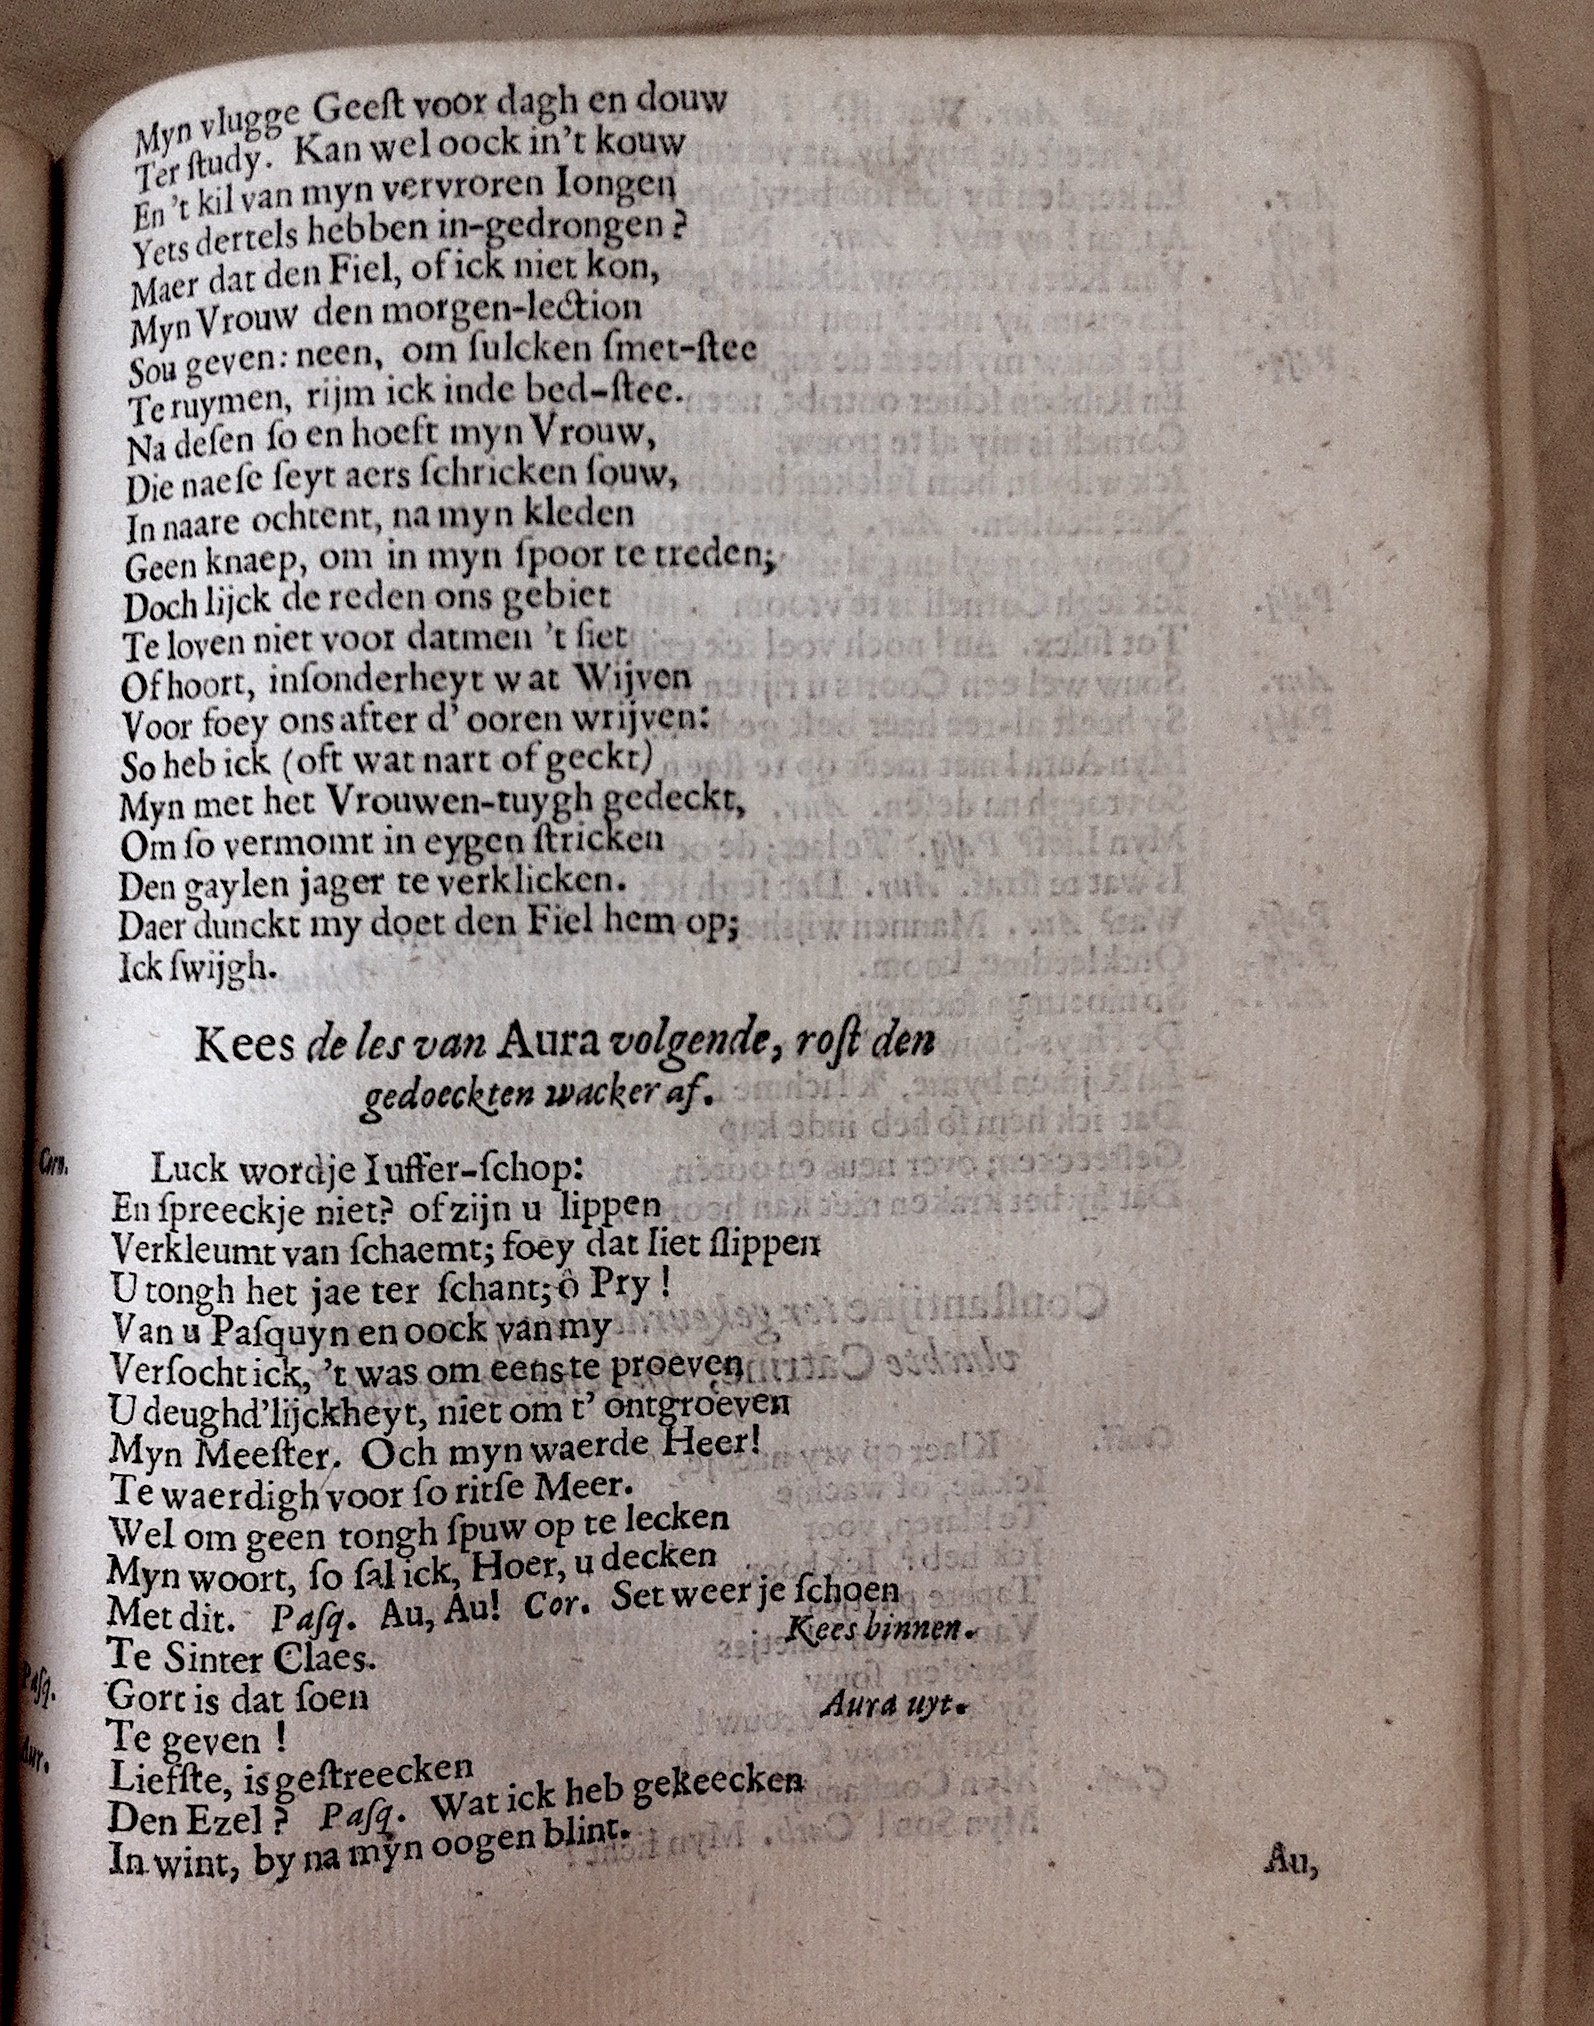 Myn vlugge Geeſt voor dagh en douw
Ter ſtudy. Kan wel oock in't kouw
En 't kil van myn vervroren Iongen
Yets dertels hebben in-gedrongen?
Maer dat den Fiel, of ick niet kon,
Myn Vrouw den morgen-lection
Sou geven: neen, om ſulcken ſmet-ſtee
Te ruymen, rijm ick inde bed-ſtee.
Na deſen ſo en hoeft myn Vrouw,
Die naeſe ſeyt aers ſchricken ſouw,
In naare ochtent, na myn kleden
Geen knaep, om in myn ſpoor te treden;
Doch lijck de reden ons gebiet
Te loven niet voor datmen 't ſiet
Of hoort, inſonderheyt wat Wijven
Voor foey ons after d' ooren wrijven:
So heb ick (oft wat nart of geckt)
Myn met het Vrouwen-tuygh gedeckt,
Om ſo vermomt in eygen ſtricken
Den gaylen jager te verklicken.
Daer dunckt my doet den Fiel hem op;
Ick ſwijgh.
Kees de les van Aura volgende, roſt den
gedoeckten wacker af.
Corn. Luck wordje Iuffer-ſchop:
En ſpreeckje niet? of zijn u lippen
Verkleumt van ſchaemt; foey dat liet ſlippen
U tongh het jae ter ſchant; ô Pry!
Van u Paſquyn en oock van my
Verſocht ick, 't was om eens te proeven
U deughd'lijckheyt, niet om t' ontgroeven
Myn Meeſter. Och myn waerde Heer!
Te waerdigh voor ſo ritſe Meer.
Wel om geen tongh ſpuw op te lecken
Myn woort, ſo ſal ick, Hoer, u decken
Met dit. Paſq. Au, Au! Cor. Set weer je ſchoen
Kees binnen.
Te Sinter Claes.
Paſq. Gort is dat ſoen
Aura uyt.
Te geven!
Aur. Liefſte, is geſtreecken
Den Ezel? Paſq. Wat ick heb gekeecken
In wint, by na myn oogen blint.
Au,